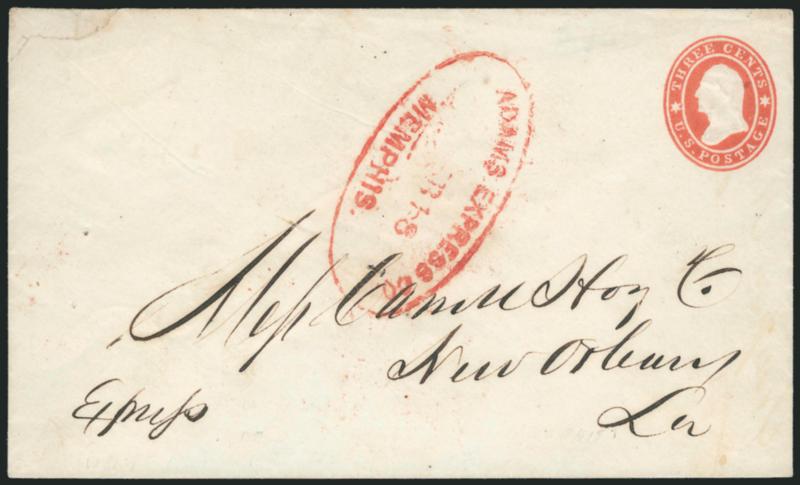 THREE CENTS
U.S. POSTAGE
ADAMS EXPRESS CO
MEMPHIS.
18
Mess Samel Hoy Co.
New Orleans
La
Express